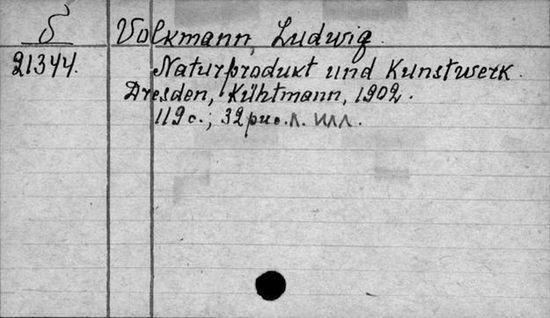 б
Volkmann, Ludwig.
21344.
Naturprodukt und Kunstwerk.
Dresden, Kühtmann, 1902.
119 с.; 32 рис. л. илл.